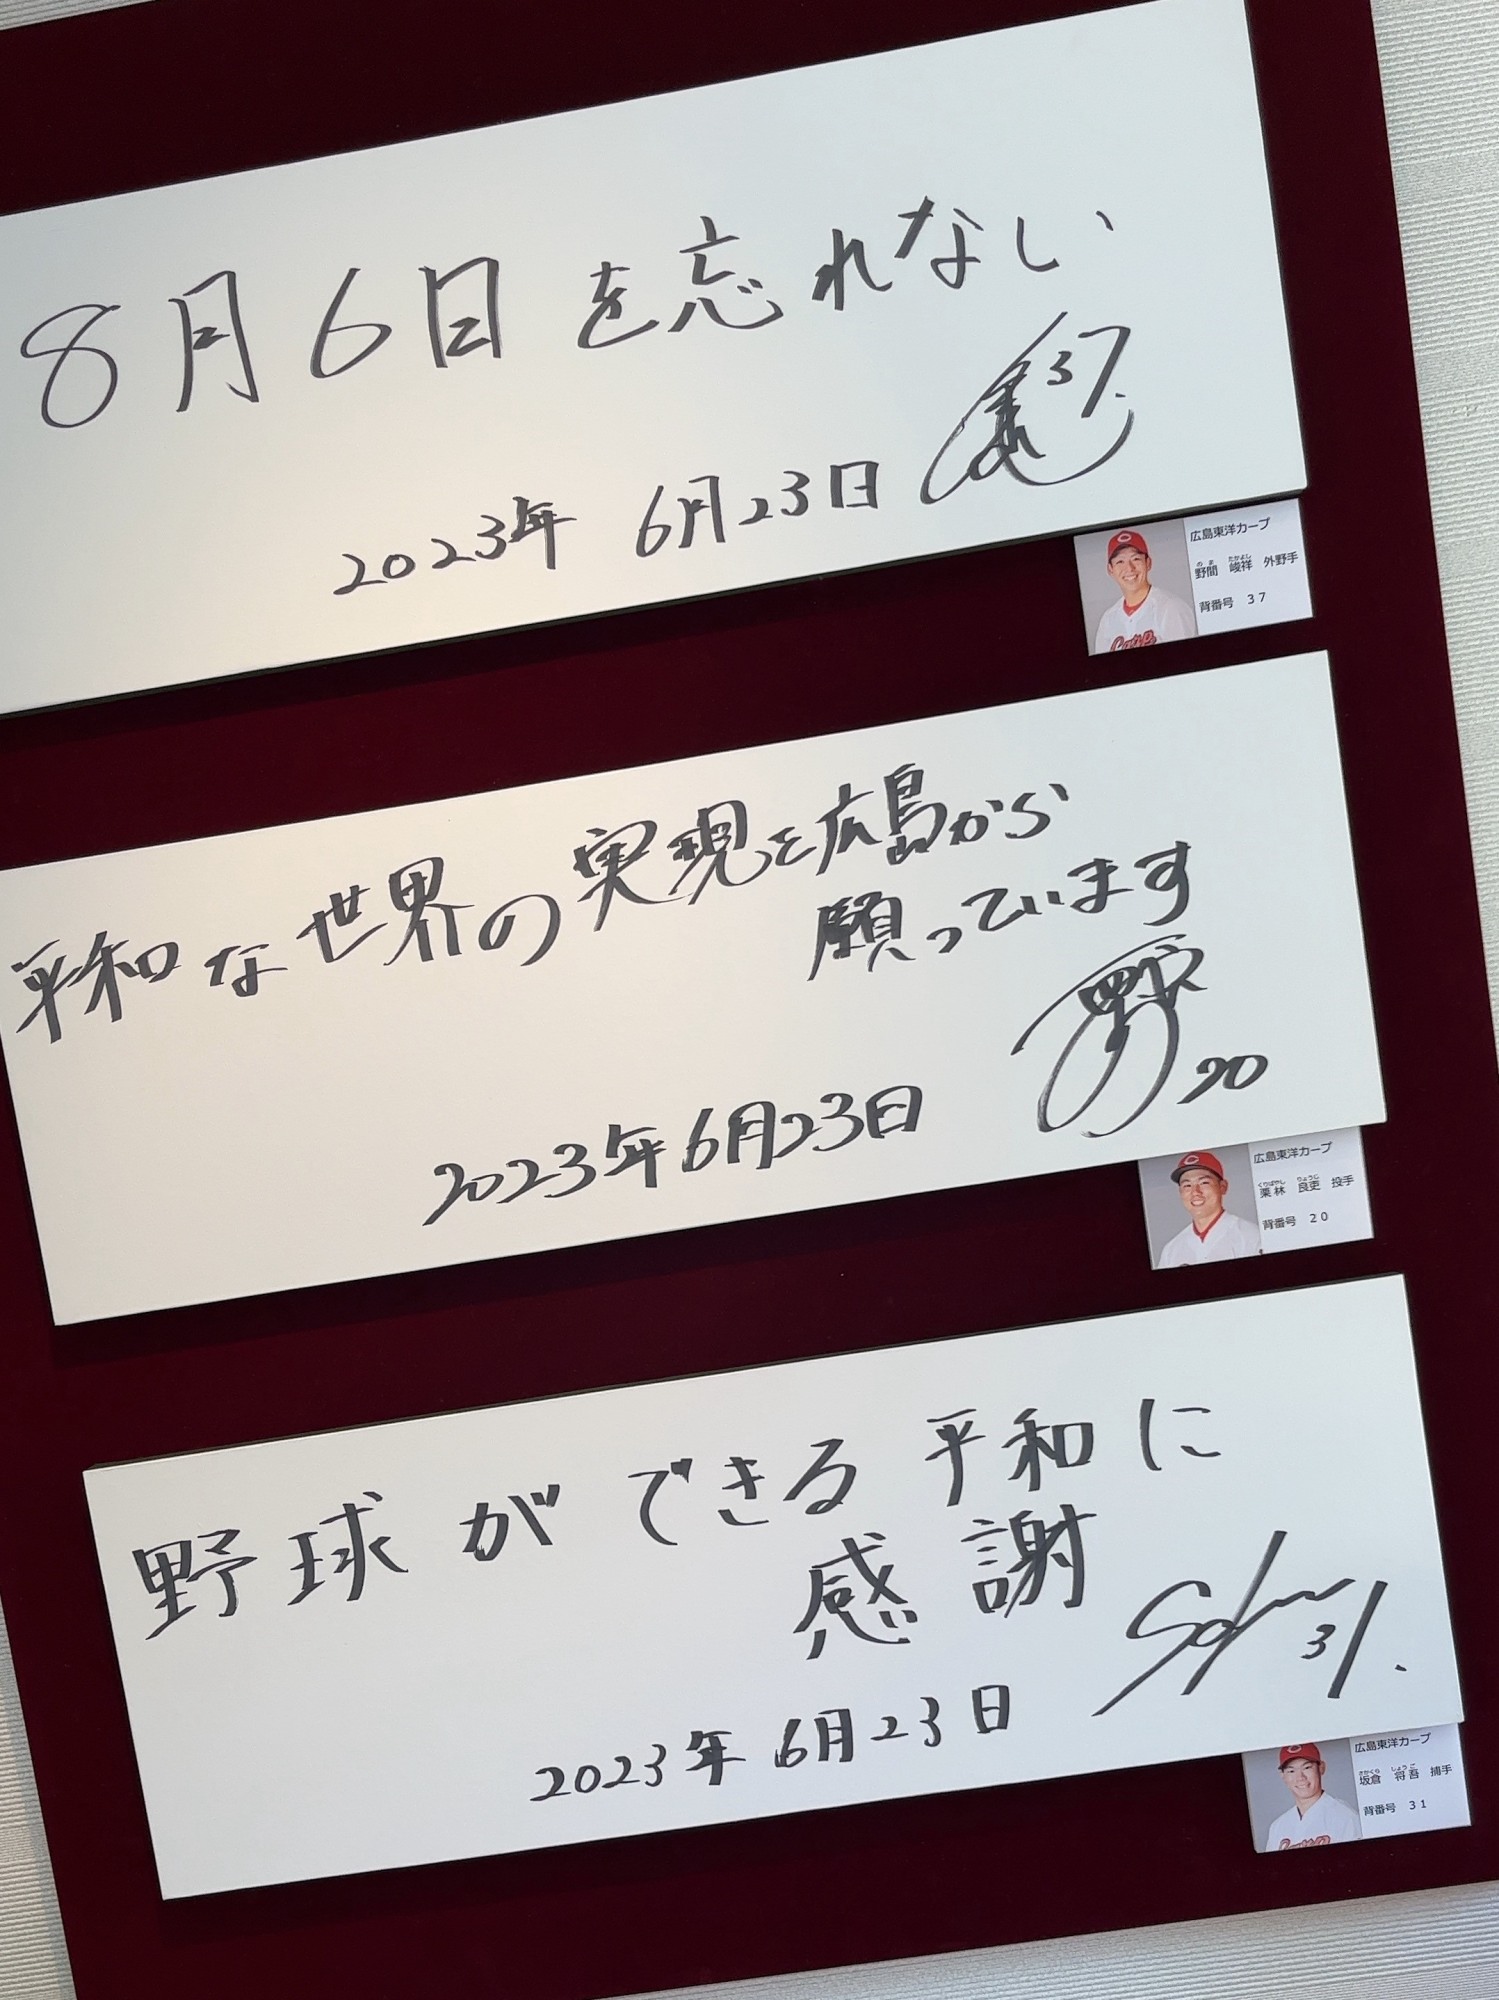 8月6日を忘れない
37.
2023年 6月23日
広島東洋カープ
のま たかよし
野間 峻祥 外野手
背番号 37
平和な世界の実現を広島から
願っています
20
2023年6月23日
広島東洋カープ
くりばやし りょうじ
栗林 良吏 投手
背番号 20
野球ができる平和に
感謝
31.
2023年 6月23日
広島東洋カープ
さかくら しょうご
坂倉 将吾 捕手
背番号 31